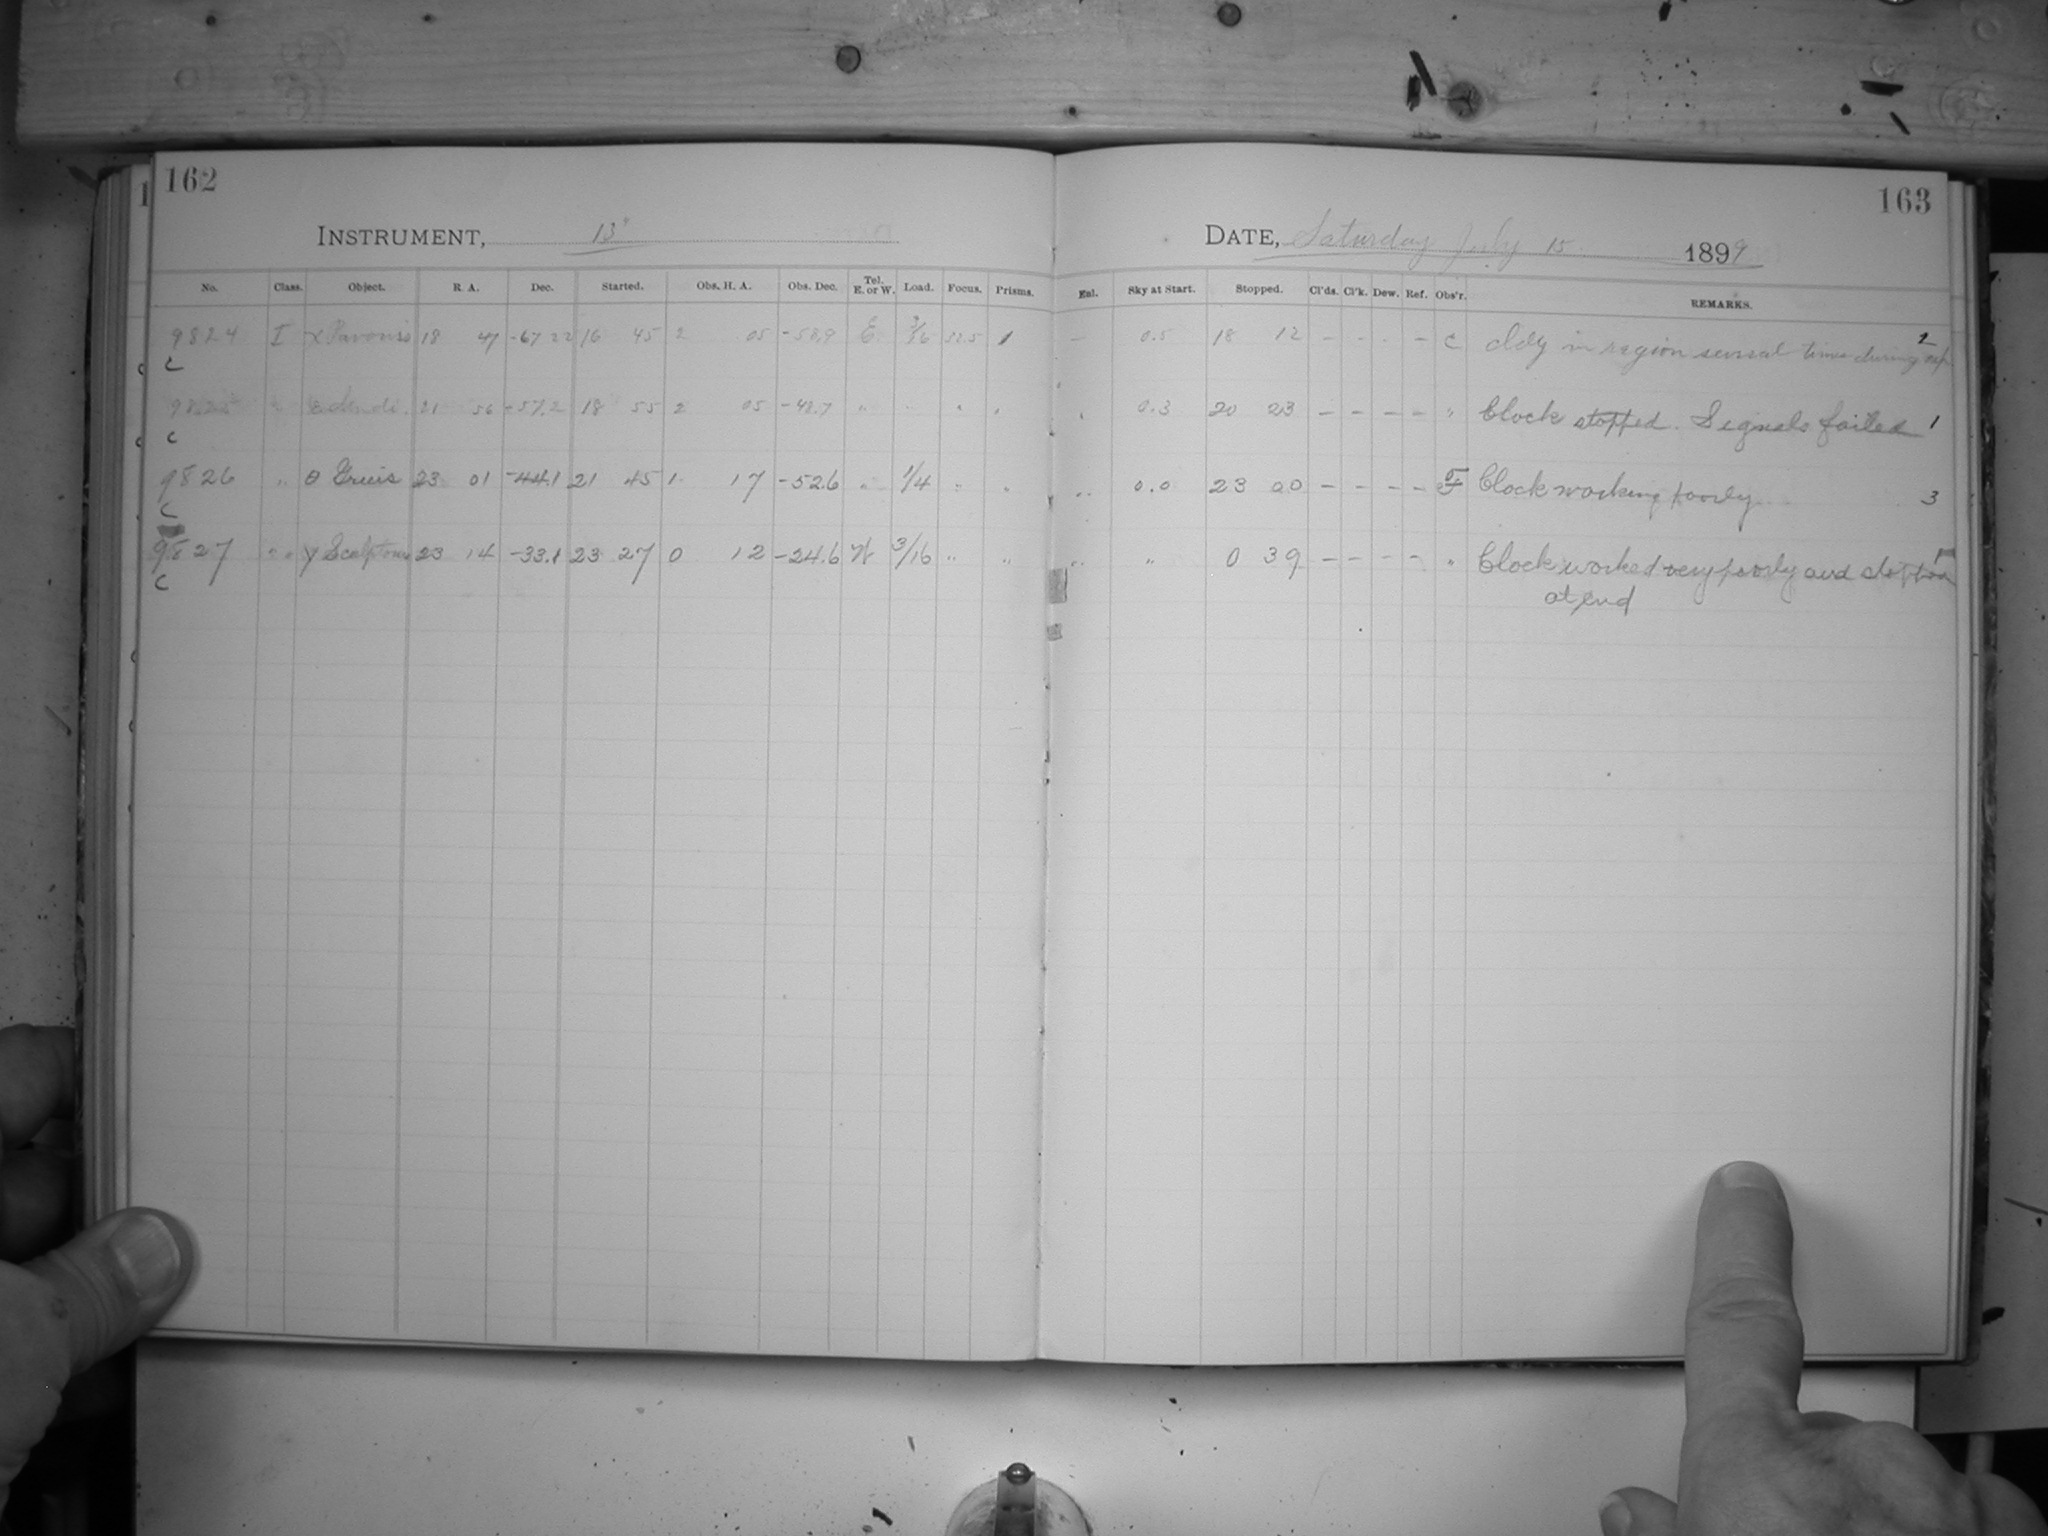 162
163
INSTRUMENT, 13"
DATE, Saturday July 15 1899
No. Class. Object. R. A. Dec. Started. Obs. H. A. Obs. Dec. Tel. E. or W. Load. Focus. Prisms. Enl. Sky at Start. Stopped. Cl'ds. Cl'k. Dew. Ref. Obs'r. REMARKS.
9824 I Pavonis 18 47 -67 22 16 45 2 05 -58.9 E 3/16 1 — 0.5 18 12 – – – C cldy in region several times during exp. 2
C
9825 " Indi 21 56 -57.2 18 55 2 05 -48.7 " " " 0.3 20 23 – – – – " Clock stopped. Signals failed 1
C
9826 " θ Gruis 23 01 -44.1 21 45 1 17 -52.6 " 1/4 " " " 0.0 23 00 – – – – Clock working poorly 3
C
9827 " " γ Sculptoris 23 14 -33.1 23 27 0 12 -24.6 W 3/16 " " " " 0 39 – – – – " Clock worked very poorly and
at end
C